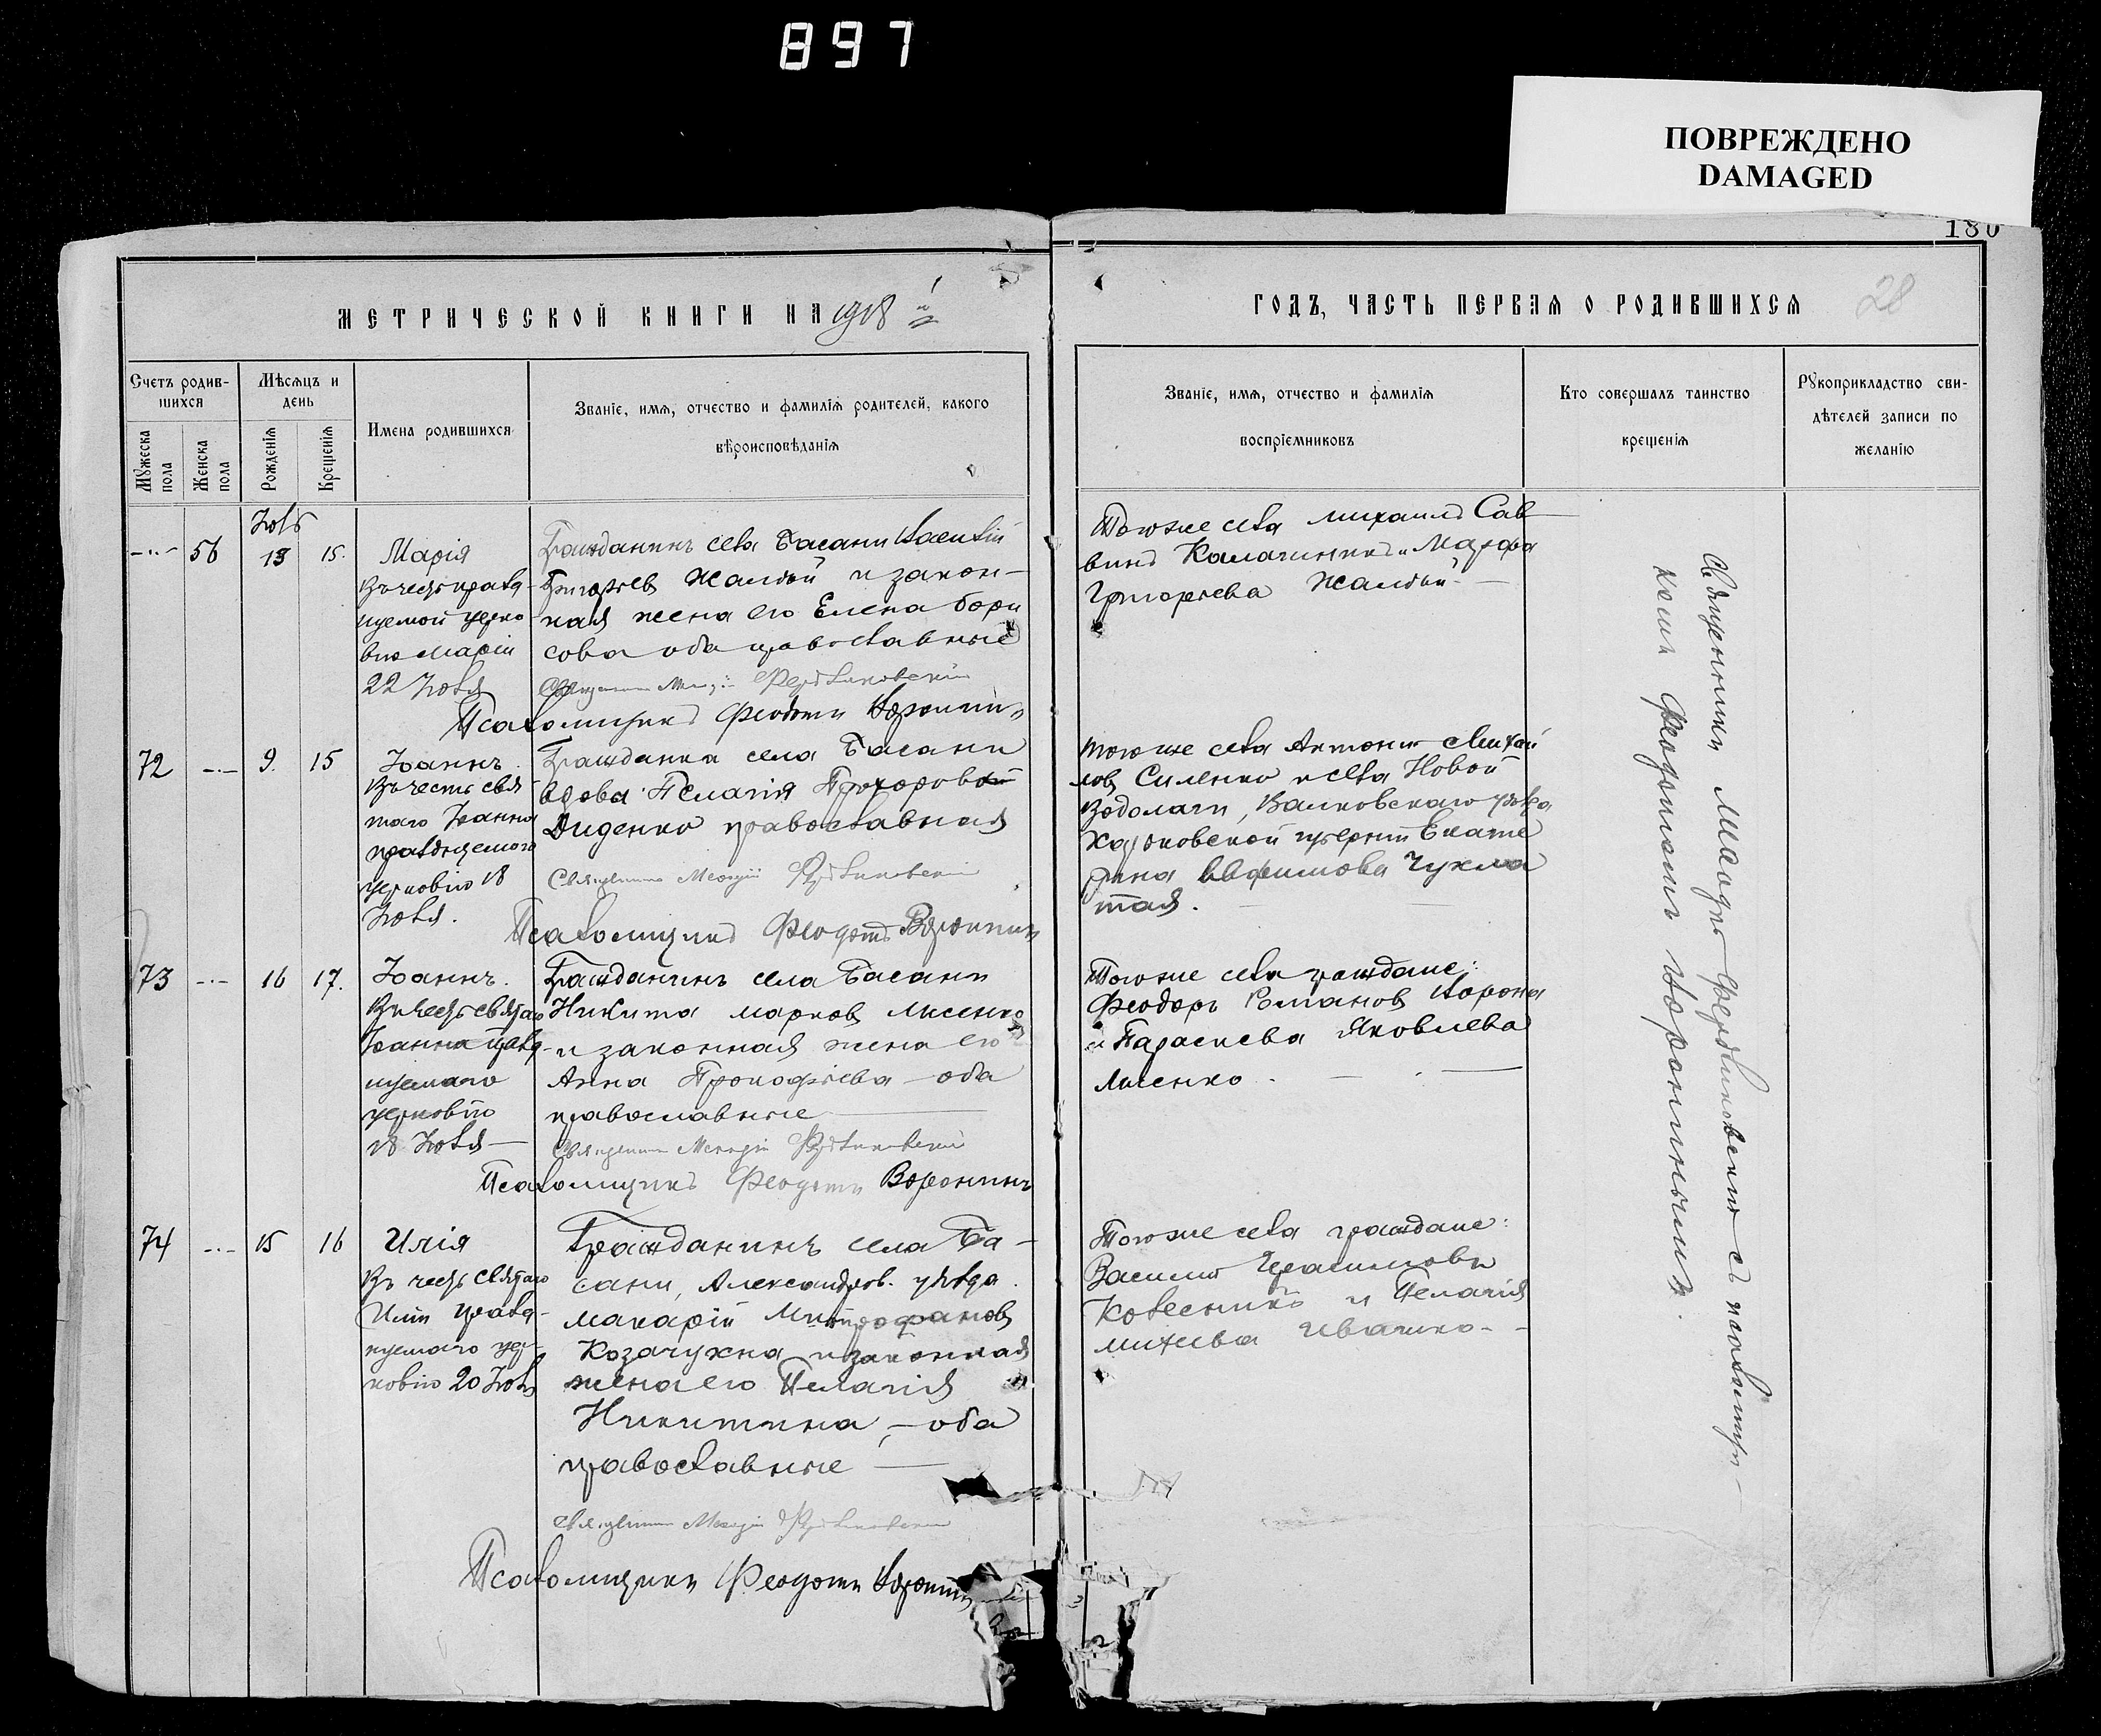 897
ПОВРЕЖДЕНО
DAMAGED
180
28
МЕТРИЧЕСКОЙ КНИГИ НА 1918 й
ГОДЪ, ЧАСТЬ ПЕРВАЯ О РОДИВШИХСЯ
Счетъ родив-
шихся
Мѣсяцъ и
день
Мужеска
пола
Женска
пола
Рожденія
Крещенія
Имена родившихся
Званіе, имя, отчество и фамилія родителей, какого
вѣроисповѣданія
Званіе, имя, отчество и фамилія
воспріемниковъ
Кто совершалъ таинство
крещенія
Рукоприкладство сви-
дѣтелей записи по
желанію
Іюль
56 13 15.
Марія
Въ честь празд-
нуемой церко-
вію Маріи
22 Іюля
Гражданинъ села Басани
Григорьев и закон-
ная жена его Елена Бори
сова оба православные
Псаломщикъ Феодотъ Воронинъ
Тогоже села Михаилъ Сав-
винъ и Марфа
Григорьева
72 9. 15
Іоаннъ.
Въ честь свя
таго Іоанна
празднуемого
церковію 18
Іюля.
Гражданка села Басани
вдова Пелагія
Диденко православная
Священникъ
Псаломщикъ Феодотъ Воронинъ
Тогоже села Антоній Михаи
лов Силенко и села Новой
Водолаги, Валковскаго уѣзда,
Харьковской губерніи Екате
рина Евфимова Чухма
тая.
73 16 17.
Іоаннъ.
Въ честь святаго
Іоанна празд-
нуемаго
церковію
18 Іюля
Гражданинъ села Басани
Никита Марков Лисенко
и законная жена его
Анна Прокофіева оба
православные
Священникъ
Псаломщикъ Феодотъ Воронинъ
Тогоже села граждане:
Феодоръ Романов Ворона
и Параскева Яковлева
Лисенко.
74 15 16
Илія
Въ честь святаго
Иліи празд-
нуемаго цер-
ковію 20 Іюля
Гражданинъ села Ба-
сани, Александров. уѣзда.
Макарій Митрофанов
Козачухна и законная
жена его Пелагія
Никитина, - оба
православные
Священникъ
Псаломщикъ Феодотъ Воронинъ
Тогоже села граждане:
Василій Герасимовъ
Колесникъ и Пелагія
Ивашко
Священникъ съ псаломщи-
комъ Феодотомъ Воронинымъ.